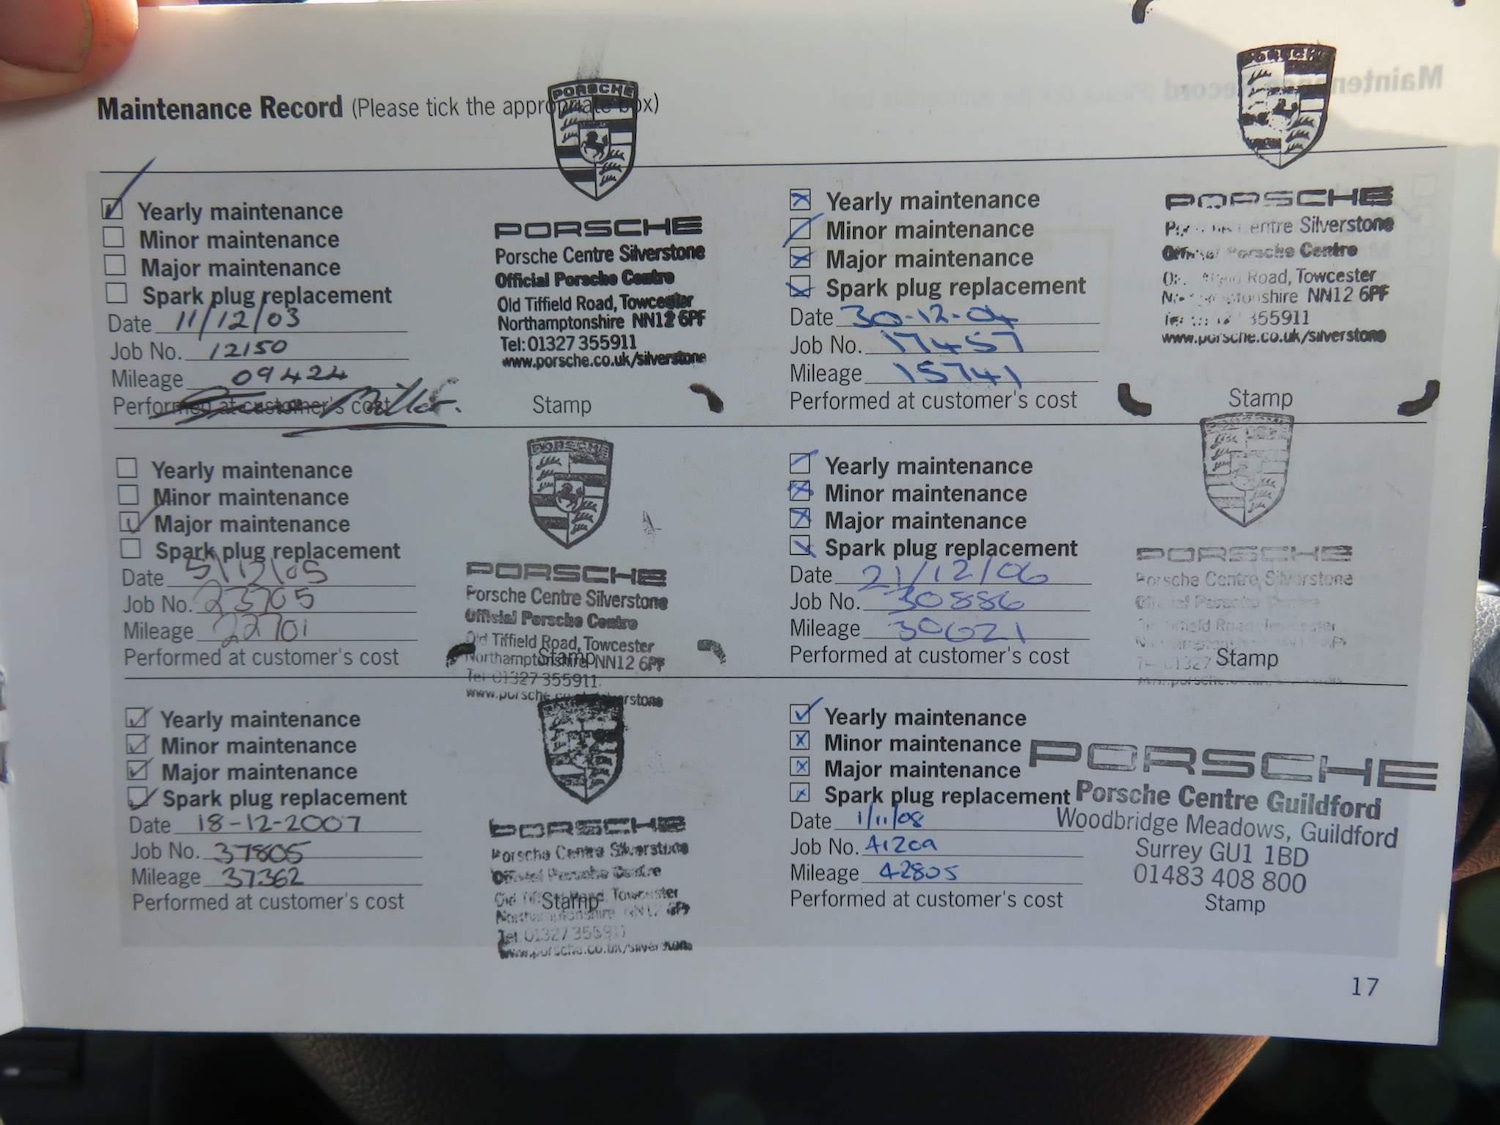 Maintenance Record (Please tick the appropriate box)
PORSCHE
Yearly maintenance
Minor maintenance
Major maintenance
Spark plug replacement
Date 11/12/03
Job No. 12150
Mileage 09424
Performed at customer's cost
PORSCHE
Porsche Centre Silverstone
Official Porsche Centre
Old Tiffield Road, Towcester
Northamptonshire NN12 6PF
Tel: 01327 355911
www.porsche.co.uk/silverstone
Stamp
PORSCHE
Yearly maintenance
Minor maintenance
Major maintenance
Spark plug replacement
Date 30-12-04
Job No. 17457
Mileage 15741
Performed at customer's cost
PORSCHE
Porsche Centre Silverstone
Official Porsche Centre
Road, Towcester
NN12 6PF
355911
www.porsche.co.uk/silverstone
Stamp
Yearly maintenance
Minor maintenance
Major maintenance
Spark plug replacement
Date 5/12/05
Job No. 23705
Mileage 22701
Performed at customer's cost
PORSCHE
PORSCHE
Porsche Centre Silverstone
Official Porsche Centre
Old Tiffield Road, Towcester
Northamptonshire NN12 6PF
Tel 01327 355911
www.porsche.co.uk/silverstone
Stamp
Yearly maintenance
Minor maintenance
Major maintenance
Spark plug replacement
Date 21/12/06
Job No. 30886
Mileage 30621
Performed at customer's cost
PORSCHE
PORSCHE
Porsche Centre Silverstone
Stamp
Yearly maintenance
Minor maintenance
Major maintenance
Spark plug replacement
Date 18-12-2007
Job No. 37805
Mileage 37362
Performed at customer's cost
PORSCHE
Porsche Centre Silverstone
Official Porsche Centre
Road, Towcester
Northamptonshire NN12 6PF
Tel 01327 355911
www.porsche.co.uk/silverstone
Stamp
Yearly maintenance
Minor maintenance
Major maintenance
Spark plug replacement
Date 1/11/08
Job No.
Mileage 42805
Performed at customer's cost
PORSCHE
Porsche Centre Guildford
Woodbridge Meadows, Guildford
Surrey GU1 1BD
01483 408 800
Stamp
17